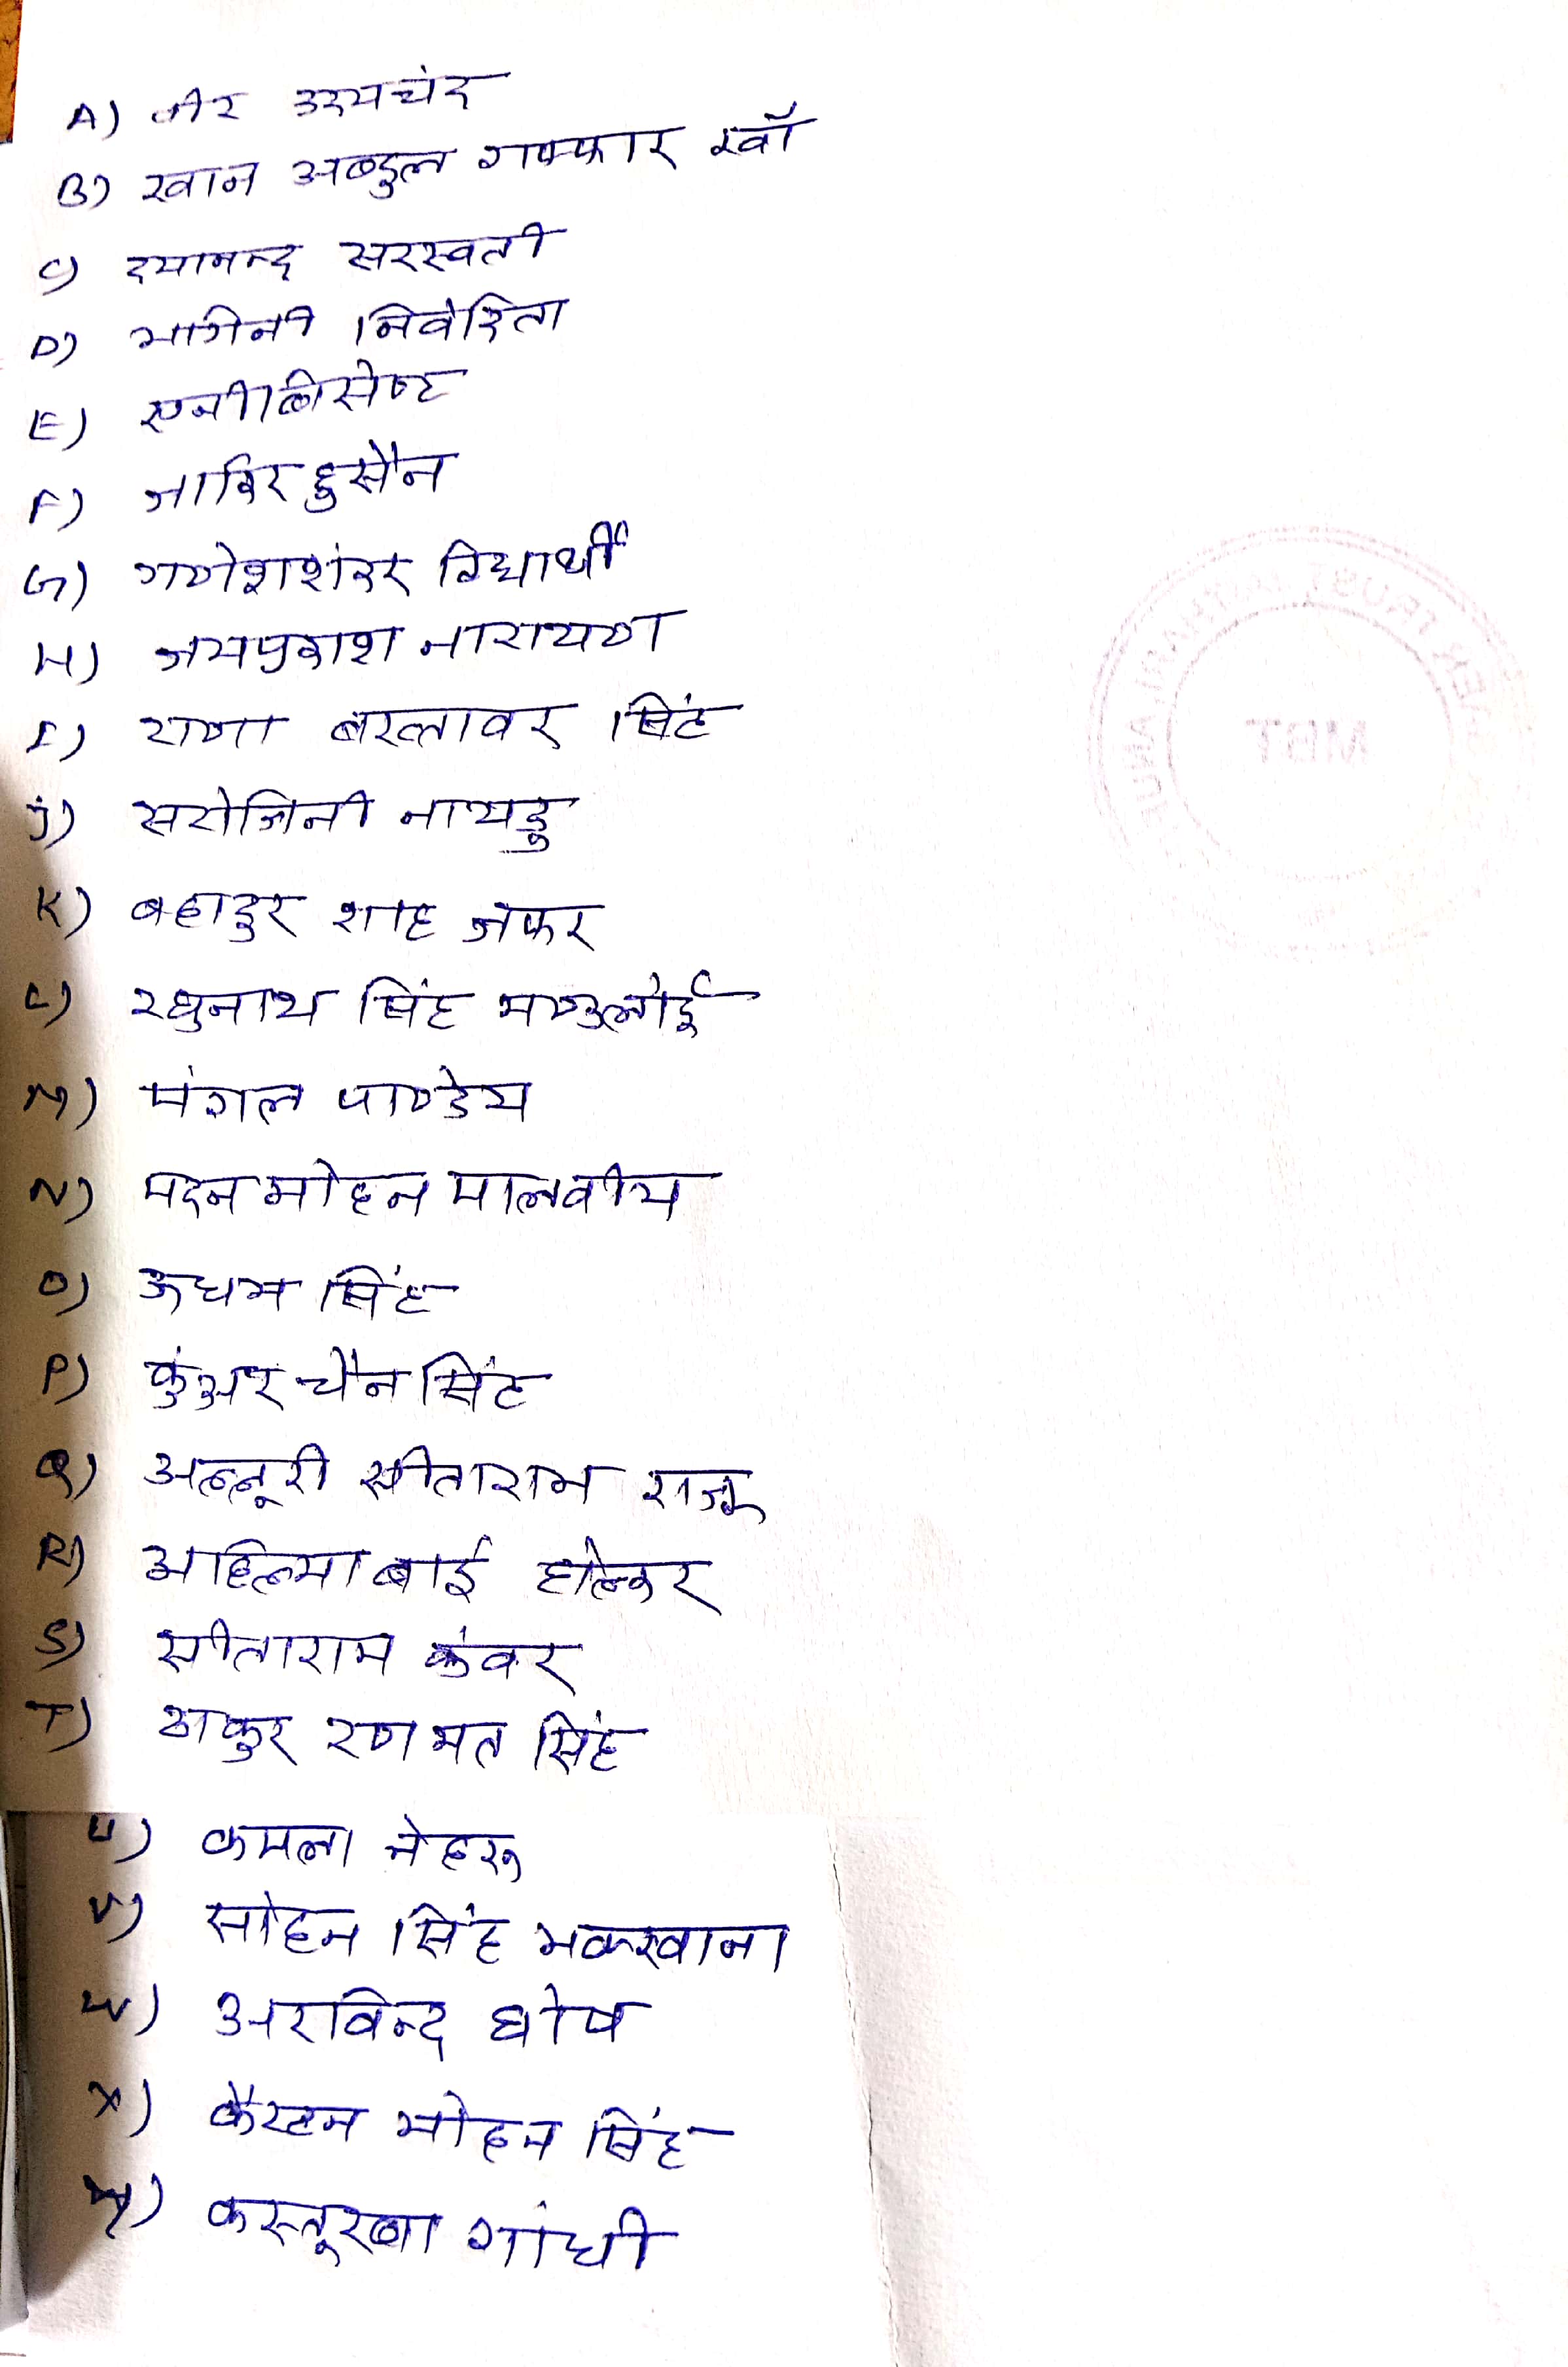 A) वीर उदयचंद
B) खान अब्दुल गफ्फार खाँ
C) दयानन्द सरस्वती
D) भगिनी निवेदिता
E) एनी बिसेण्ट
F) जाकिर हुसैन
G) गणेशशंकर विद्यार्थी
H) जयप्रकाश नारायण
I) राणा बख्तावर सिंह
J) सरोजिनी नायडु
K) बहादुर शाह जफर
L) रघुनाथ सिंह मण्डलोई
M) मंगल पाण्डेय
N) मदन मोहन मालवीय
O) ऊधम सिंह
P) कुंअर चैन सिंह
Q) अल्लूरी सीताराम राजू
R) अहिल्या बाई होल्कर
S) सीताराम कंवर
T) ठाकुर रणमत सिंह
U) कमला नेहरू
V) सोहन सिंह भकखाना
W) अरविन्द घोष
X) कैप्टन मोहन सिंह
Y) कस्तूरबा गांधी
TRUST
MBT